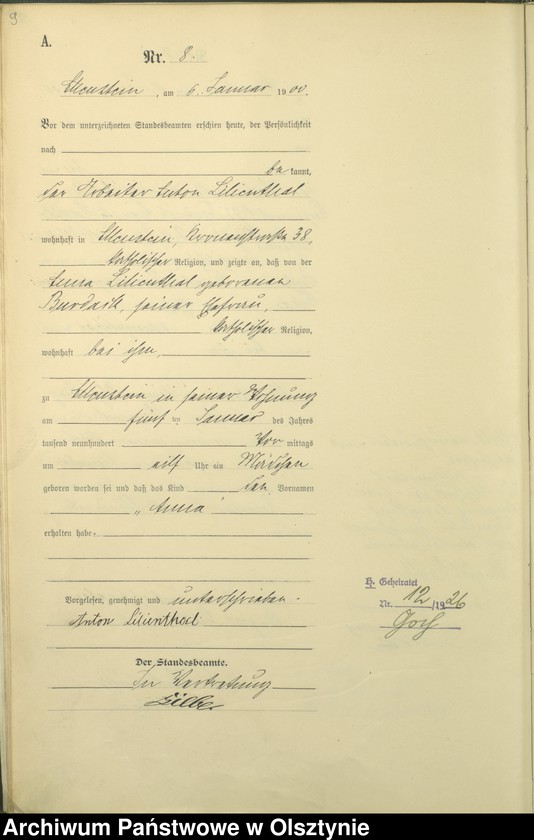 9
A.
Nr. 8.
Allenstein, am 6. Januar 1900.
Vor dem unterzeichneten Standesbeamten erschien heute, der Persönlichkeit
nach
be kannt,
der Arbeiter Anton Lilienthal
wohnhaft in Allenstein, Kronenstraße 38,
katholischer Religion, und zeigte an, daß von der
Anna Lilienthal geborenen
Burdack, seiner Ehefrau,
katholischer Religion,
wohnhaft bei ihm,
zu Allenstein in seiner Wohnung
am fünf ten Januar des Jahres
tausend neunhundert Vor mittags
um eilf Uhr ein Mädchen
geboren worden sei und daß das Kind den Vornamen
„Anna“
erhalten habe.
Vorgelesen, genehmigt und unterschrieben.
Anton Lilienthal
Der Standesbeamte.
In Vertretung
H. Geheiratet
Nr. 12/1926
Archiwum Państwowe w Olsztynie